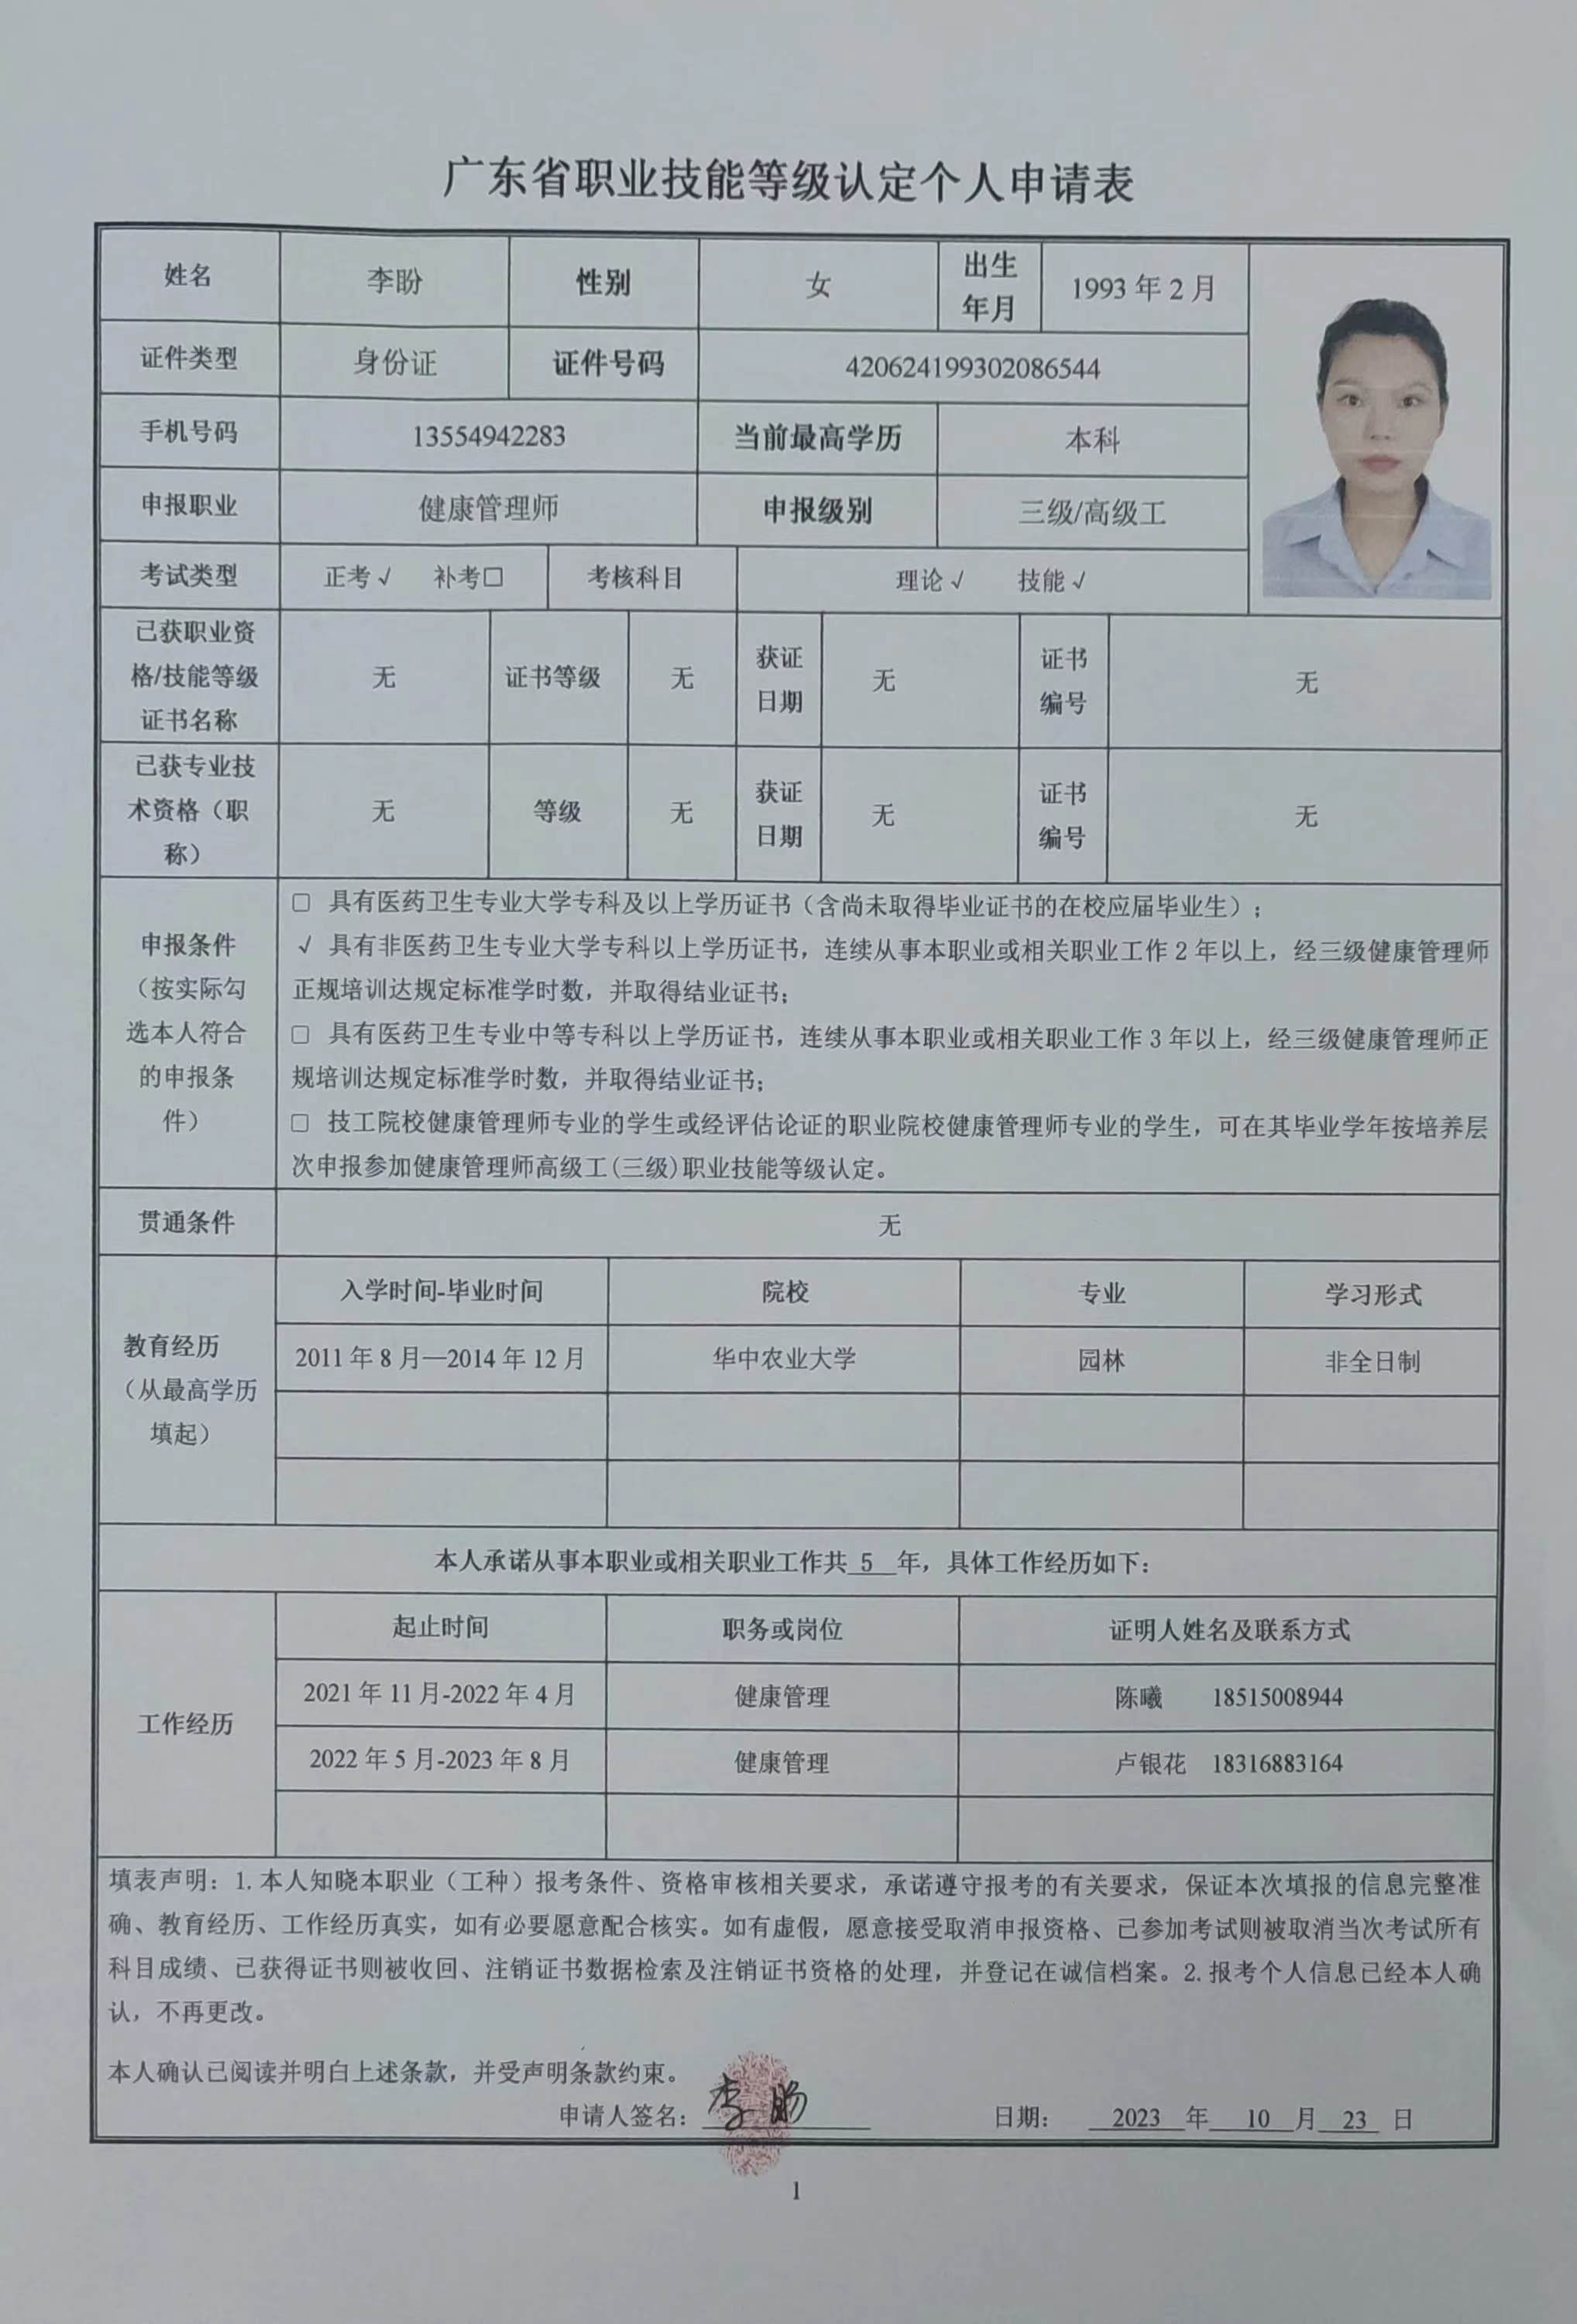 广东省职业技能等级认定个人申请表
姓名 李盼 性别 女 出生年月 1993 年 2 月
证件类型 身份证 证件号码 420624199302086544
手机号码 13554942283 当前最高学历 本科
申报职业 健康管理师 申报级别 三级/高级工
考试类型 正考√ 补考□ 考核科目 理论√ 技能√
已获职业资格/技能等级证书名称 无 证书等级 无 获证日期 无 证书编号 无
已获专业技术资格（职称） 无 等级 无 获证日期 无 证书编号 无
申报条件（按实际勾选本人符合的申报条件）
□ 具有医药卫生专业大学专科及以上学历证书（含尚未取得毕业证书的在校应届毕业生）；
√ 具有非医药卫生专业大学专科以上学历证书，连续从事本职业或相关职业工作 2 年以上，经三级健康管理师
正规培训达规定标准学时数，并取得结业证书；
□ 具有医药卫生专业中等专科以上学历证书，连续从事本职业或相关职业工作 3 年以上，经三级健康管理师正
规培训达规定标准学时数，并取得结业证书；
□ 技工院校健康管理师专业的学生或经评估论证的职业院校健康管理师专业的学生，可在其毕业学年按培养层
次申报参加健康管理师高级工(三级)职业技能等级认定。
贯通条件 无
教育经历（从最高学历填起）
入学时间-毕业时间 院校 专业 学习形式
2011 年 8 月—2014 年 12 月 华中农业大学 园林 非全日制
本人承诺从事本职业或相关职业工作共 5 年，具体工作经历如下：
工作经历
起止时间 职务或岗位 证明人姓名及联系方式
2021 年 11 月-2022 年 4 月 健康管理 陈曦 18515008944
2022 年 5 月-2023 年 8 月 健康管理 卢银花 18316883164
填表声明：1.本人知晓本职业（工种）报考条件、资格审核相关要求，承诺遵守报考的有关要求，保证本次填报的信息完整准
确、教育经历、工作经历真实，如有必要愿意配合核实。如有虚假，愿意接受取消申报资格、已参加考试则被取消当次考试所有
科目成绩、已获得证书则被收回、注销证书数据检索及注销证书资格的处理，并登记在诚信档案。2.报考个人信息已经本人确
认，不再更改。
本人确认已阅读并明白上述条款，并受声明条款约束。
申请人签名： 李盼 日期： 2023 年 10 月 23 日
1